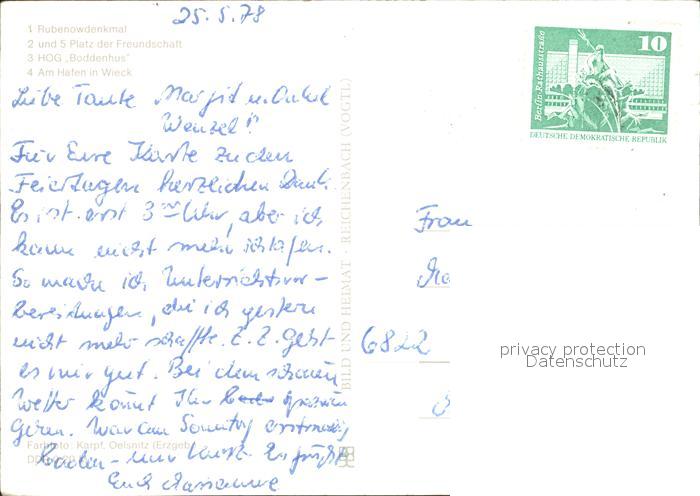 25.5.78
1 Rubenowdenkmal
2 und 5 Platz der Freundschaft
3 HOG „Boddenhus“
4 Am Hafen in Wieck
Liebe Tante Margit u. Onkel
Wenzel!
Für Eure Karte zu den
Feiertagen herzlichen Dank.
Es ist erst 3 Uhr, aber ich
kann nicht mehr schlafen.
So mache ich Unterrichtsvor-
bereitungen, die ich gestern
nicht mehr schaffte. Z. Z. geht
es mir gut. Bei dem schönen
Wetter könnt Ihr
gehen. War am Sonntag erstmalig
baden - nur kurz. Es grüßt
Euch Marianne
Farbfoto: Karpf, Oelsnitz (Erzgeb
BILD UND HEIMAT · REICHENBACH (VOGTL)
Berlin-Rathausstraße
10
DEUTSCHE DEMOKRATISCHE REPUBLIK
Frau
6822
privacy protection
Datenschutz